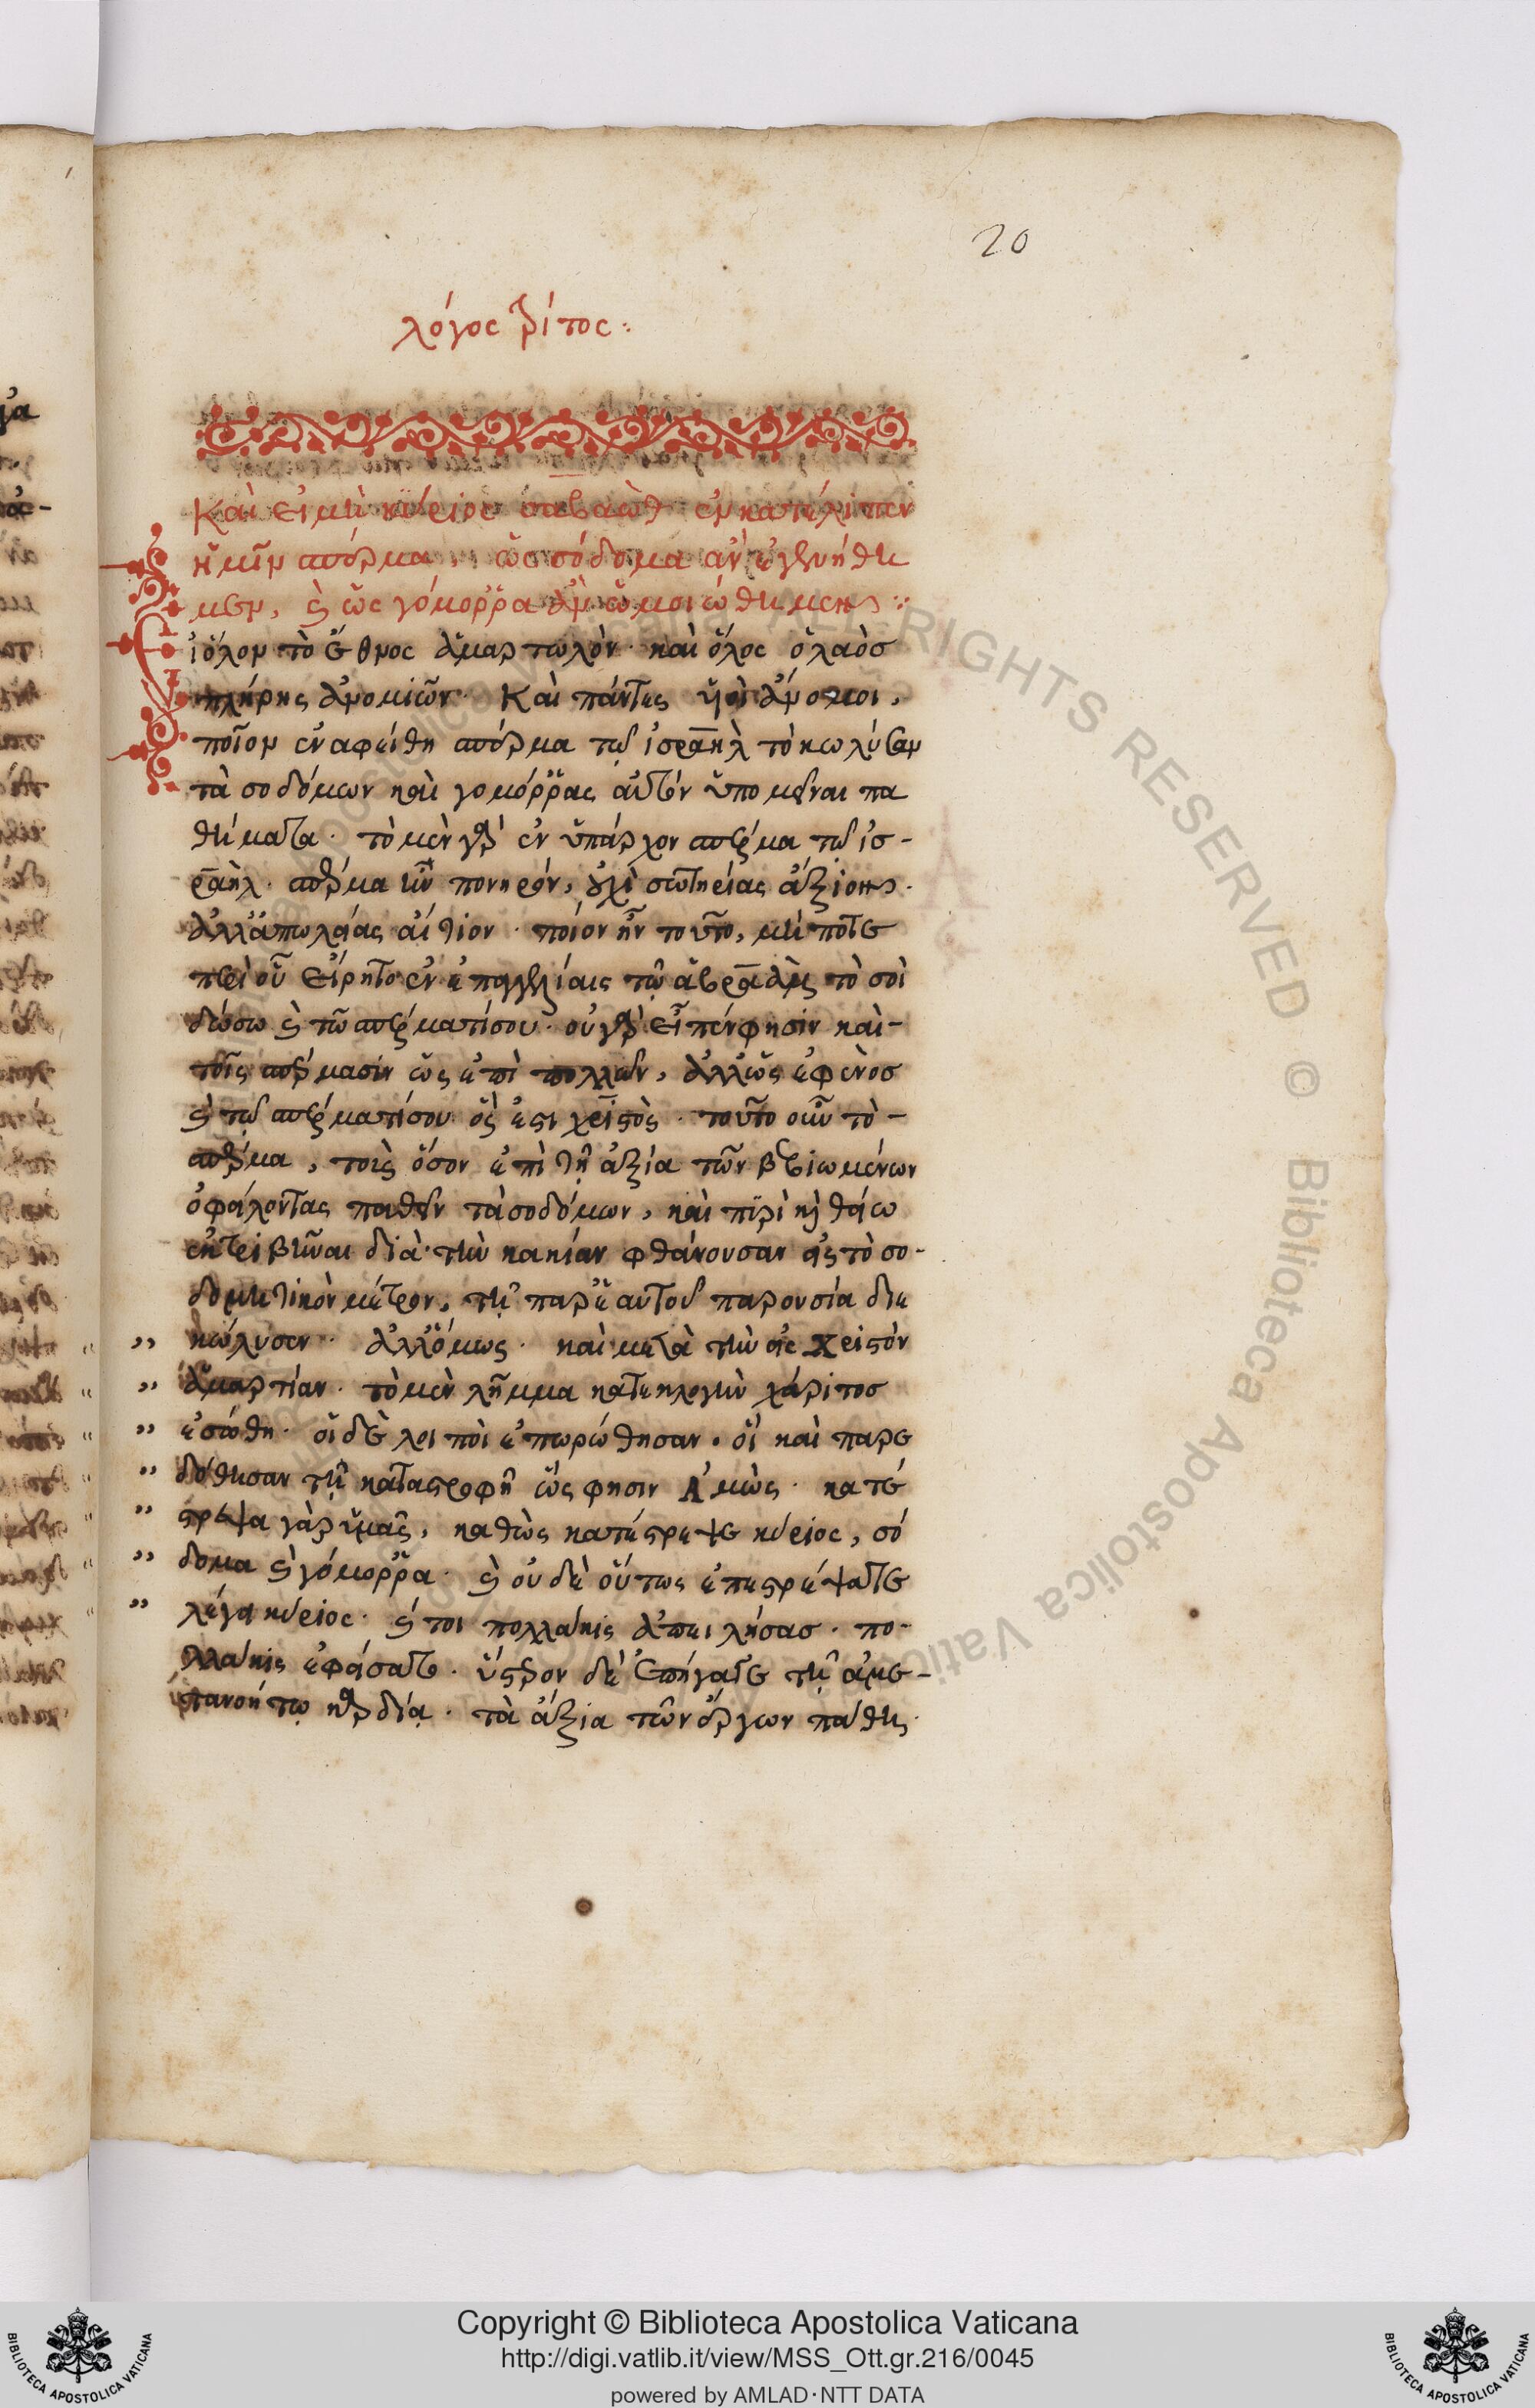 20
λόγος τρίτος:
Καὶ εἰ μὴ κύριος σαβαὼθ ἐγκατέλιπεν
ἡμῖν σπέρμα, ὡς σόδομα ἂν ἐγενήθη
μεν, καὶ ὡς γόμορρα ἂν ὡμοιώθημεν:
Εἰ ὅλον τὸ ἔθνος ἁμαρτωλὸν· καὶ ὅλος ὁ λαὸς
πλήρης ἀνομιῶν· Καὶ πάντες υἱοὶ ἄνομοι,
ποῖον ἐναφείθη σπέρμα τῷ ἰσραὴλ τὸ κωλύσαν
τὰ σοδόμων καὶ γομόρρας αὐτὸν ὑπομεῖναι πα
θήματα· τὸ μὲν γὰρ ἐνυπάρχον σπέρμα τῷ ἰσ-
ραὴλ· σπέρμα ἦν πονηρόν, οὐχὶ σωτηρίας ἄξιον·
ἀλλ' ἀπωλείας αἴτιον· ποῖον ἦν τοῦτο, μήποτε
περὶ οὗ εἴρητο ἐν ἐπαγγελίαις τῷ ἀβραὰμ τὸ σοὶ
δώσω καὶ τῶ σπέρματί σου· οὐ γὰρ εἶπέν φησιν καὶ-
τοῖς σπέρμασιν ὡς ἐπὶ πολλῶν, ἀλλ' ὡς ἐφ' ἑνὸς
καὶ τῷ σπέρματί σου ὅς ἐστι χριστὸς· τοῦτο οὖν τὸ-
σπέρμα, τοὺς ὅσον ἐπὶ τῇ ἀξία τῶν βεβιωμένων
ὀφείλοντας παθεῖν τὰ σοδόμων, καὶ πυρὶ καὶ θείω
ἐκτριβῆναι διὰ τὴν κακίαν φθάνουσαν εἰς τὸ σο-
δομητικὸν μέτρον, τῇ παρ' ἑαυτοῦ παρουσία διε
κώλυσεν· ἀλλ' ὅμως· καὶ μετὰ τὴν εἰς Χριστὸν
ἁμαρτίαν· τὸ μὲν λῆμμα κατ' ἐκλογὴν χάριτος
ἐσώθη· οἱ δὲ λοιποὶ ἐπωρώθησαν· οἳ καὶ παρε
δόθησαν τῇ καταστροφῇ ὥς φησιν Ἀμὼς· κατέ
στρεψα γὰρ ὑμᾶς, καθὼς κατέστρεψε κύριος, σό
δομα καὶ γόμορρα· καὶ οὐδὲ οὕτως ἐπεστρέψατε
λέγει κύριος· καί τοι πολλάκις ἀπειλήσας· πο-
λλάκις ἐφείσατο· ὕστερον δὲ ἐπήγαγε τῇ ἀμε-
τανοήτῳ καρδίᾳ· τὰ ἄξια τῶν ἔργων πάθη·
Copyright © Biblioteca Apostolica Vaticana
http://digi.vatlib.it/view/MSS_Ott.gr.216/0045
powered by AMLAD·NTT DATA